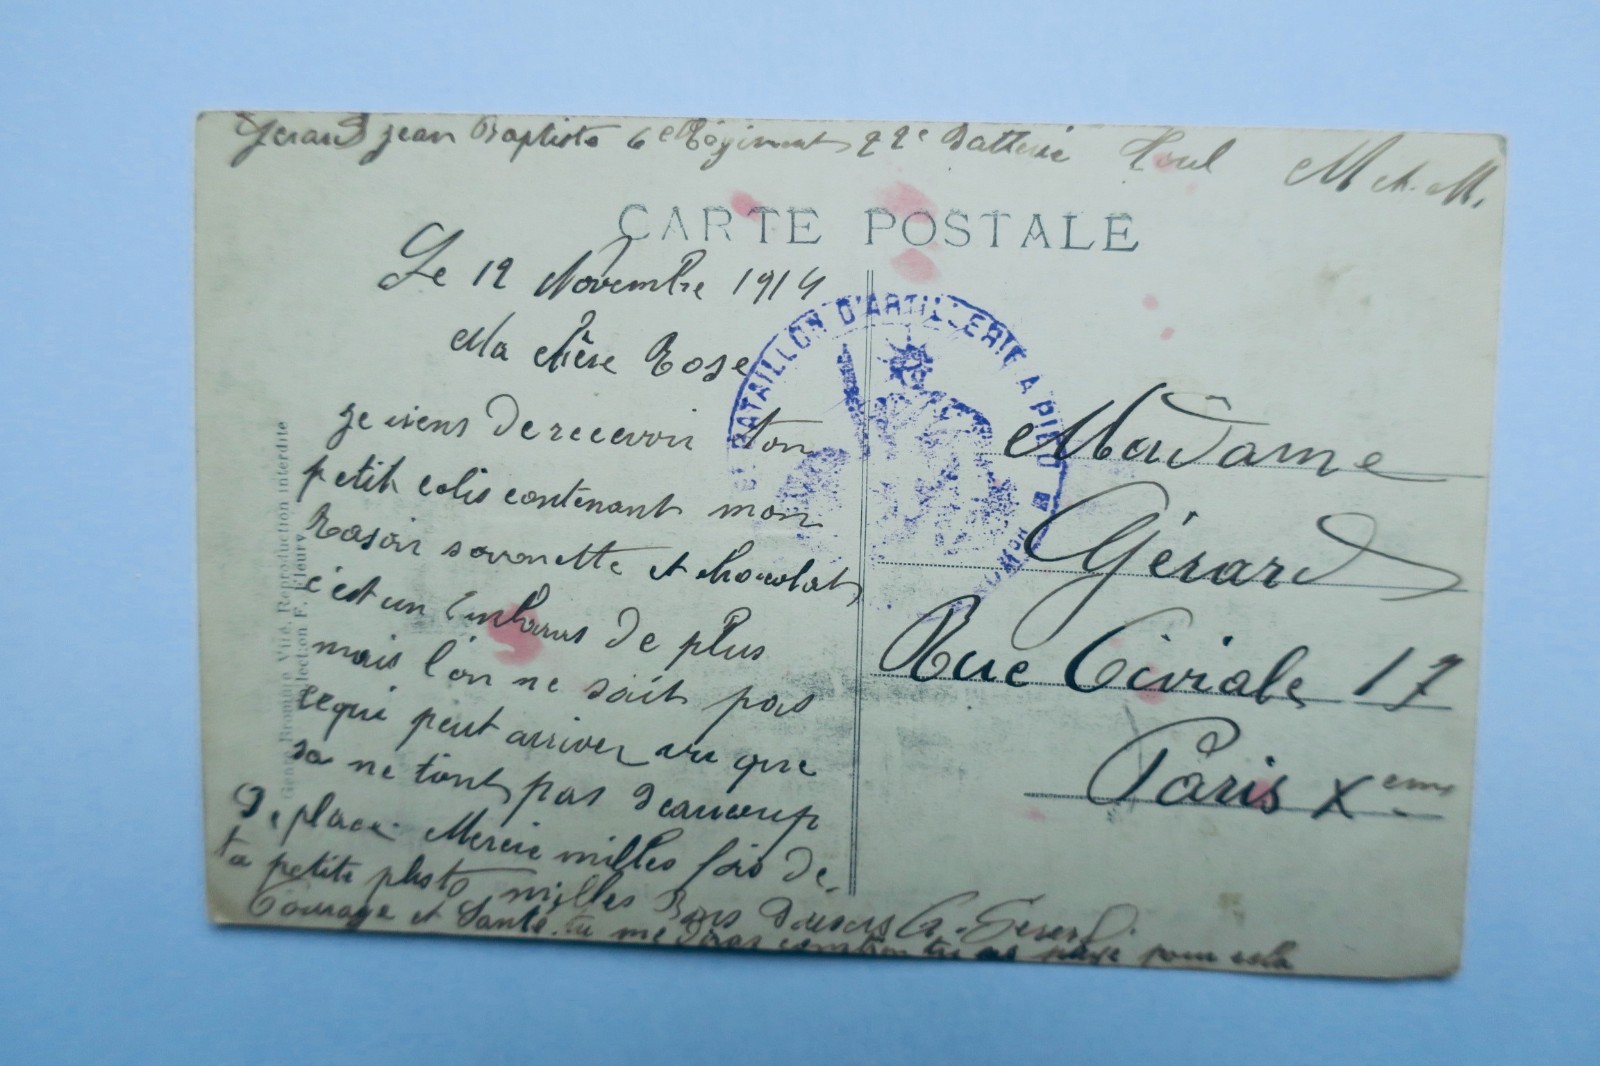 Gerard Jean Baptiste 6e Régiment 22e Batterie Toul M et M.
CARTE POSTALE
Le 12 Novembre 1914
Ma chère Rose
je viens de recevoir ton
petit colis contenant mon
Rasoir savonette et chocolat
c'est un Embarras de plus
mais l'on ne sait pas
cequi peut arriver vu que
sa ne tient pas beaucoup
De place. Mercie milles fois de
ta petite photo milles Bons Baisers G. Gerard.
Courage et Santé. tu me diras combien tu as paye pour cela
BATAILLON D'ARTILLERIE A PIED
Madame
Gérard
Rue Civiale 17
Paris Xeme
Bromure Vité, Reproduction interdite
lection F. Fleury